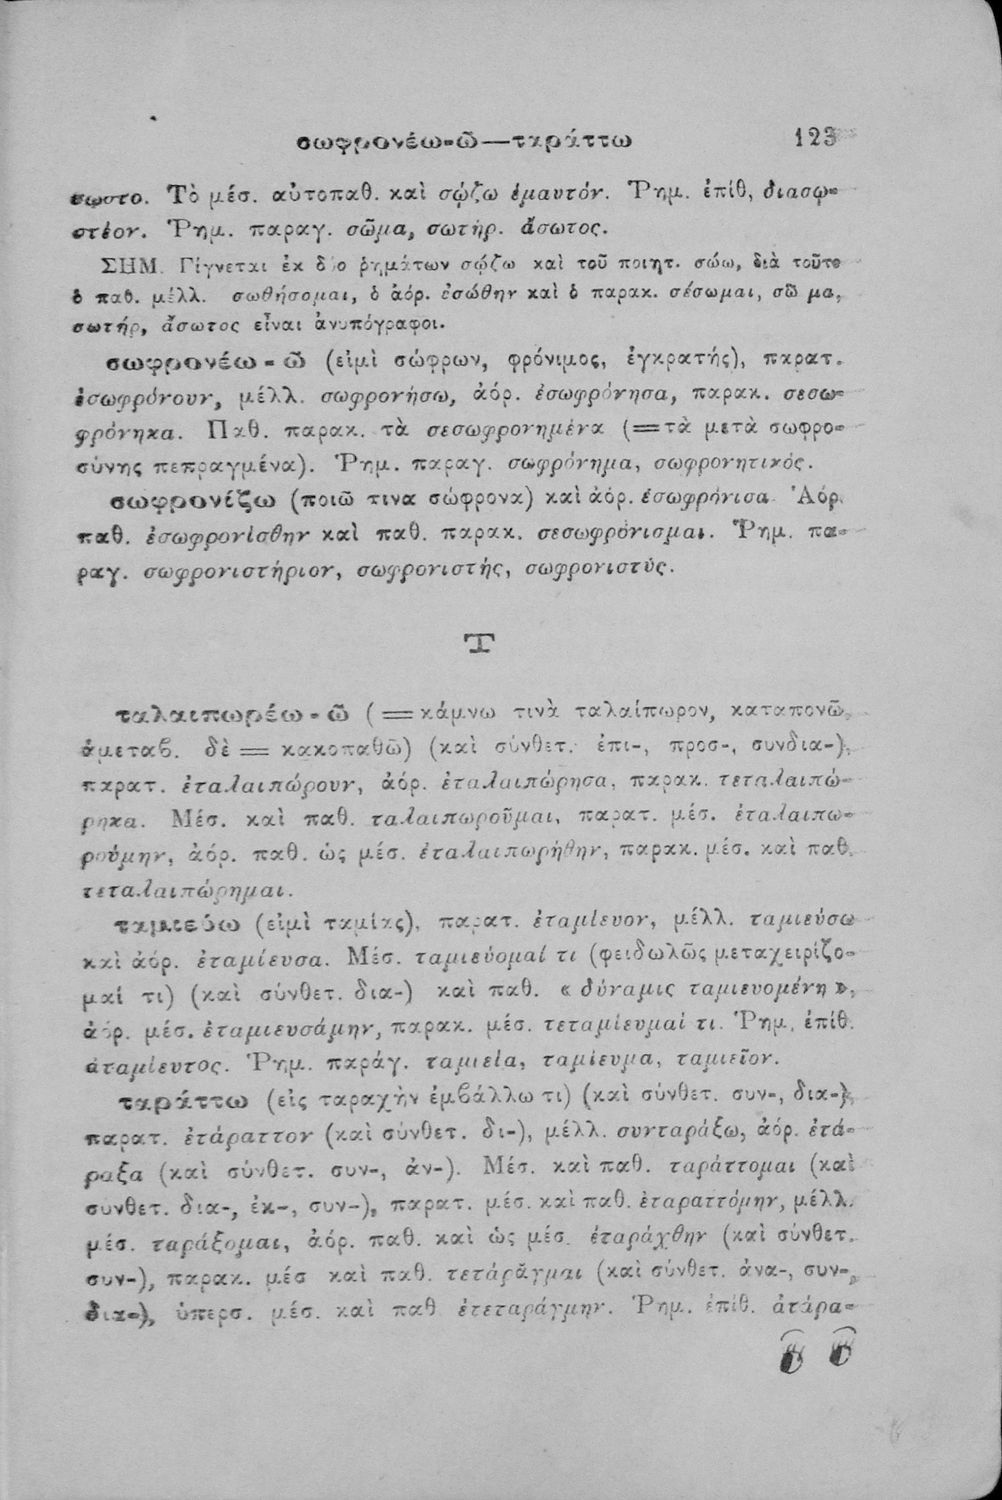 σωφρονέω-ῶ—ταράττω 123
σωστο. Τὸ μέσ. αὐτοπαθ. καὶ σῴζω ἐμαυτόν. Ῥημ. ἐπίθ, διασῳ-
στέον. Ῥημ. παραγ. σῶμα, σωτήρ. ἄσωτος.
ΣΗΜ. Γίγνεται ἐκ δύο ῥημάτων σῴζω καὶ τοῦ ποιητ. σώω, διὰ τοῦτο
ὁ παθ. μέλλ. σωθήσομαι, ὁ ἀόρ. ἐσώθην καὶ ὁ παρακ. σέσωμαι, σῶμα,
σωτήρ, ἄσωτος εἶναι ἀνυπόγραφοι.
σωφρονέω-ῶ (εἰμὶ σώφρων, φρόνιμος, ἐγκρατής), παρατ.
ἐσωφρόνουν, μέλλ. σωφρονήσω, ἀόρ. ἐσωφρόνησα, παρακ. σεσω-
φρόνηκα. Παθ. παρακ. τὰ σεσωφρονημένα (=τὰ μετὰ σωφρο-
σύνης πεπραγμένα). Ῥημ. παραγ. σωφρόνημα, σωφρονητικός.
σωφρονίζω (ποιῶ τινα σώφρονα) καὶ ἀόρ. ἐσωφρόνισα. Ἀόρ.
παθ. ἐσωφρονίσθην καὶ παθ. παρακ. σεσωφρόνισμαι. Ῥημ. πα-
ραγ. σωφρονιστήριον, σωφρονιστής, σωφρονιστύς.
Τ
ταλαιπωρέω-ῶ (=κάμνω τινὰ ταλαίπωρον, καταπονῶ,
ἀμεταβ. δὲ = κακοπαθῶ) (καὶ σύνθετ. ἐπι-, προσ-, συνδια-),
παρατ. ἐταλαιπώρουν, ἀόρ. ἐταλαιπώρησα, παρακ. τεταλαιπώ-
ρηκα. Μέσ. καὶ παθ. ταλαιπωροῦμαι, παρατ. μέσ. ἐταλαιπω-
ρούμην, ἀόρ. παθ. ὡς μέσ. ἐταλαιπωρήθην, παρακ. μέσ. καὶ παθ.
τεταλαιπώρημαι.
ταμιεύω (εἰμὶ ταμίας), παρατ. ἐταμίευον, μέλλ. ταμιεύσω
καὶ ἀόρ. ἐταμίευσα. Μέσ. ταμιεύομαί τι (φειδωλῶς μεταχειρίζο-
μαί τι) (καὶ σύνθετ. δια-) καὶ παθ. «δύναμις ταμιευομένη»,
ἀόρ. μέσ. ἐταμιευσάμην, παρακ. μέσ. τεταμίευμαί τι. Ῥημ, ἐπίθ.
ἀταμίευτος. Ῥημ. παράγ. ταμιεία, ταμίευμα, ταμιεῖον.
ταράττω (εἰς ταραχὴν ἐμβάλλω τι) (καὶ σύνθετ. συν-, δια-),
παρατ. ἐτάραττον (καὶ σύνθετ. δι-), μέλλ. συνταράξω, ἀόρ. ἐτά-
ραξα (καὶ σύνθετ. συν-, ἀν-). Μέσ. καὶ παθ. ταράττομαι (καὶ
συνθετ. δια-, ἐκ-, συν-), παρατ. μέσ. καὶ παθ. ἐταραττόμην, μέλλ.
μέσ. ταράξομαι, ἀόρ. παθ. καὶ ὡς μέσ. ἐταράχθην (καὶ σύνθετ.
συν-), παρακ. μέσ καὶ παθ. τετάρᾰγμαι (καὶ σύνθετ. ἀνα-, συν-,
δια-), ὑπερσ. μέσ. καὶ παθ. ἐτεταράγμην. Ῥημ. ἐπίθ. ἀτάρα-